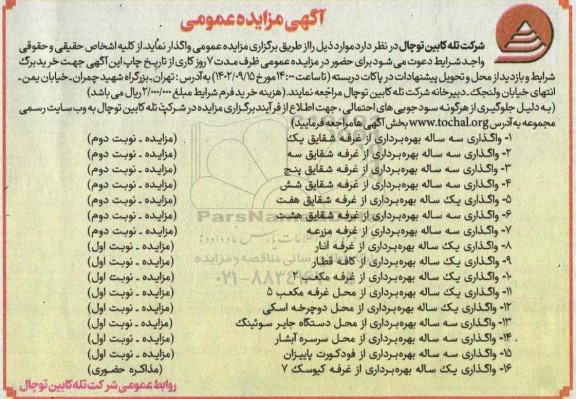 آگهی مزایده عمومی
شرکت تله کابین توچال در نظر دارد موارد ذیل را از طریق برگزاری مزایده عمومی واگذار نماید. از کلیه اشخاص حقیقی و حقوقی
واجد شرایط دعوت می شود برای حضور در مزایده عمومی ظرف مدت ۷ روز کاری از تاریخ چاپ این آگهی جهت خرید برگ
شرایط و بازدید از محل و تحویل پیشنهادات در پاکات دربسته (تا ساعت ۱۴:۰۰ مورخ ۱۴۰۲/۰۹/۱۵) به آدرس: تهران، بزرگراه شهید چمران ـ خیابان یمن ـ
انتهای خیابان ولنجک ـ دبیرخانه شرکت تله کابین توچال مراجعه نمایند. (هزینه خرید فرم شرایط مبلغ ۲/۰۰۰/۰۰۰ ریال می باشد)
(به دلیل جلوگیری از هرگونه سودجویی های احتمالی، جهت اطلاع از فرآیند برگزاری مزایده در شرکت تله کابین توچال به وب سایت رسمی
مجموعه به آدرس www.tochal.org بخش آگهی ها مراجعه فرمایید)
۱- واگذاری سه ساله بهره برداری از غرفه شقایق یک (مزایده ـ نوبت دوم)
۲- واگذاری سه ساله بهره برداری از غرفه شقایق سه (مزایده ـ نوبت دوم)
۳- واگذاری سه ساله بهره برداری از غرفه شقایق پنج (مزایده ـ نوبت دوم)
۴- واگذاری سه ساله بهره برداری از غرفه شقایق شش (مزایده ـ نوبت دوم)
۵- واگذاری یک ساله بهره برداری از غرفه شقایق هفت (مزایده ـ نوبت دوم)
۶- واگذاری سه ساله بهره برداری از غرفه شقایق هشت (مزایده ـ نوبت دوم)
۷- واگذاری سه ساله بهره برداری از غرفه مزرعه (مزایده ـ نوبت دوم)
۸- واگذاری یک ساله بهره برداری از غرفه انار (مزایده ـ نوبت اول)
۹- واگذاری یک ساله بهره برداری از کافه قطار (مزایده ـ نوبت اول)
۱۰- واگذاری یک ساله بهره برداری از غرفه مکعب ۲ (مزایده ـ نوبت اول)
۱۱- واگذاری یک ساله بهره برداری از محل غرفه مکعب ۵ (مزایده ـ نوبت اول)
۱۲- واگذاری یک ساله بهره برداری از محل دوچرخه اسکی (مزایده ـ نوبت اول)
۱۳- واگذاری سه ساله بهره برداری از محل دستگاه جایر سوئینگ (مزایده ـ نوبت اول)
۱۴- واگذاری سه ساله بهره برداری از محل سرسره آبشار (مزایده ـ نوبت اول)
۱۵- واگذاری سه ساله بهره برداری از فودکورت پاییزان (مزایده ـ نوبت اول)
۱۶- واگذاری یک ساله بهره برداری از غرفه کیوسک ۷ (مذاکره حضوری)
روابط عمومی شرکت تله کابین توچال